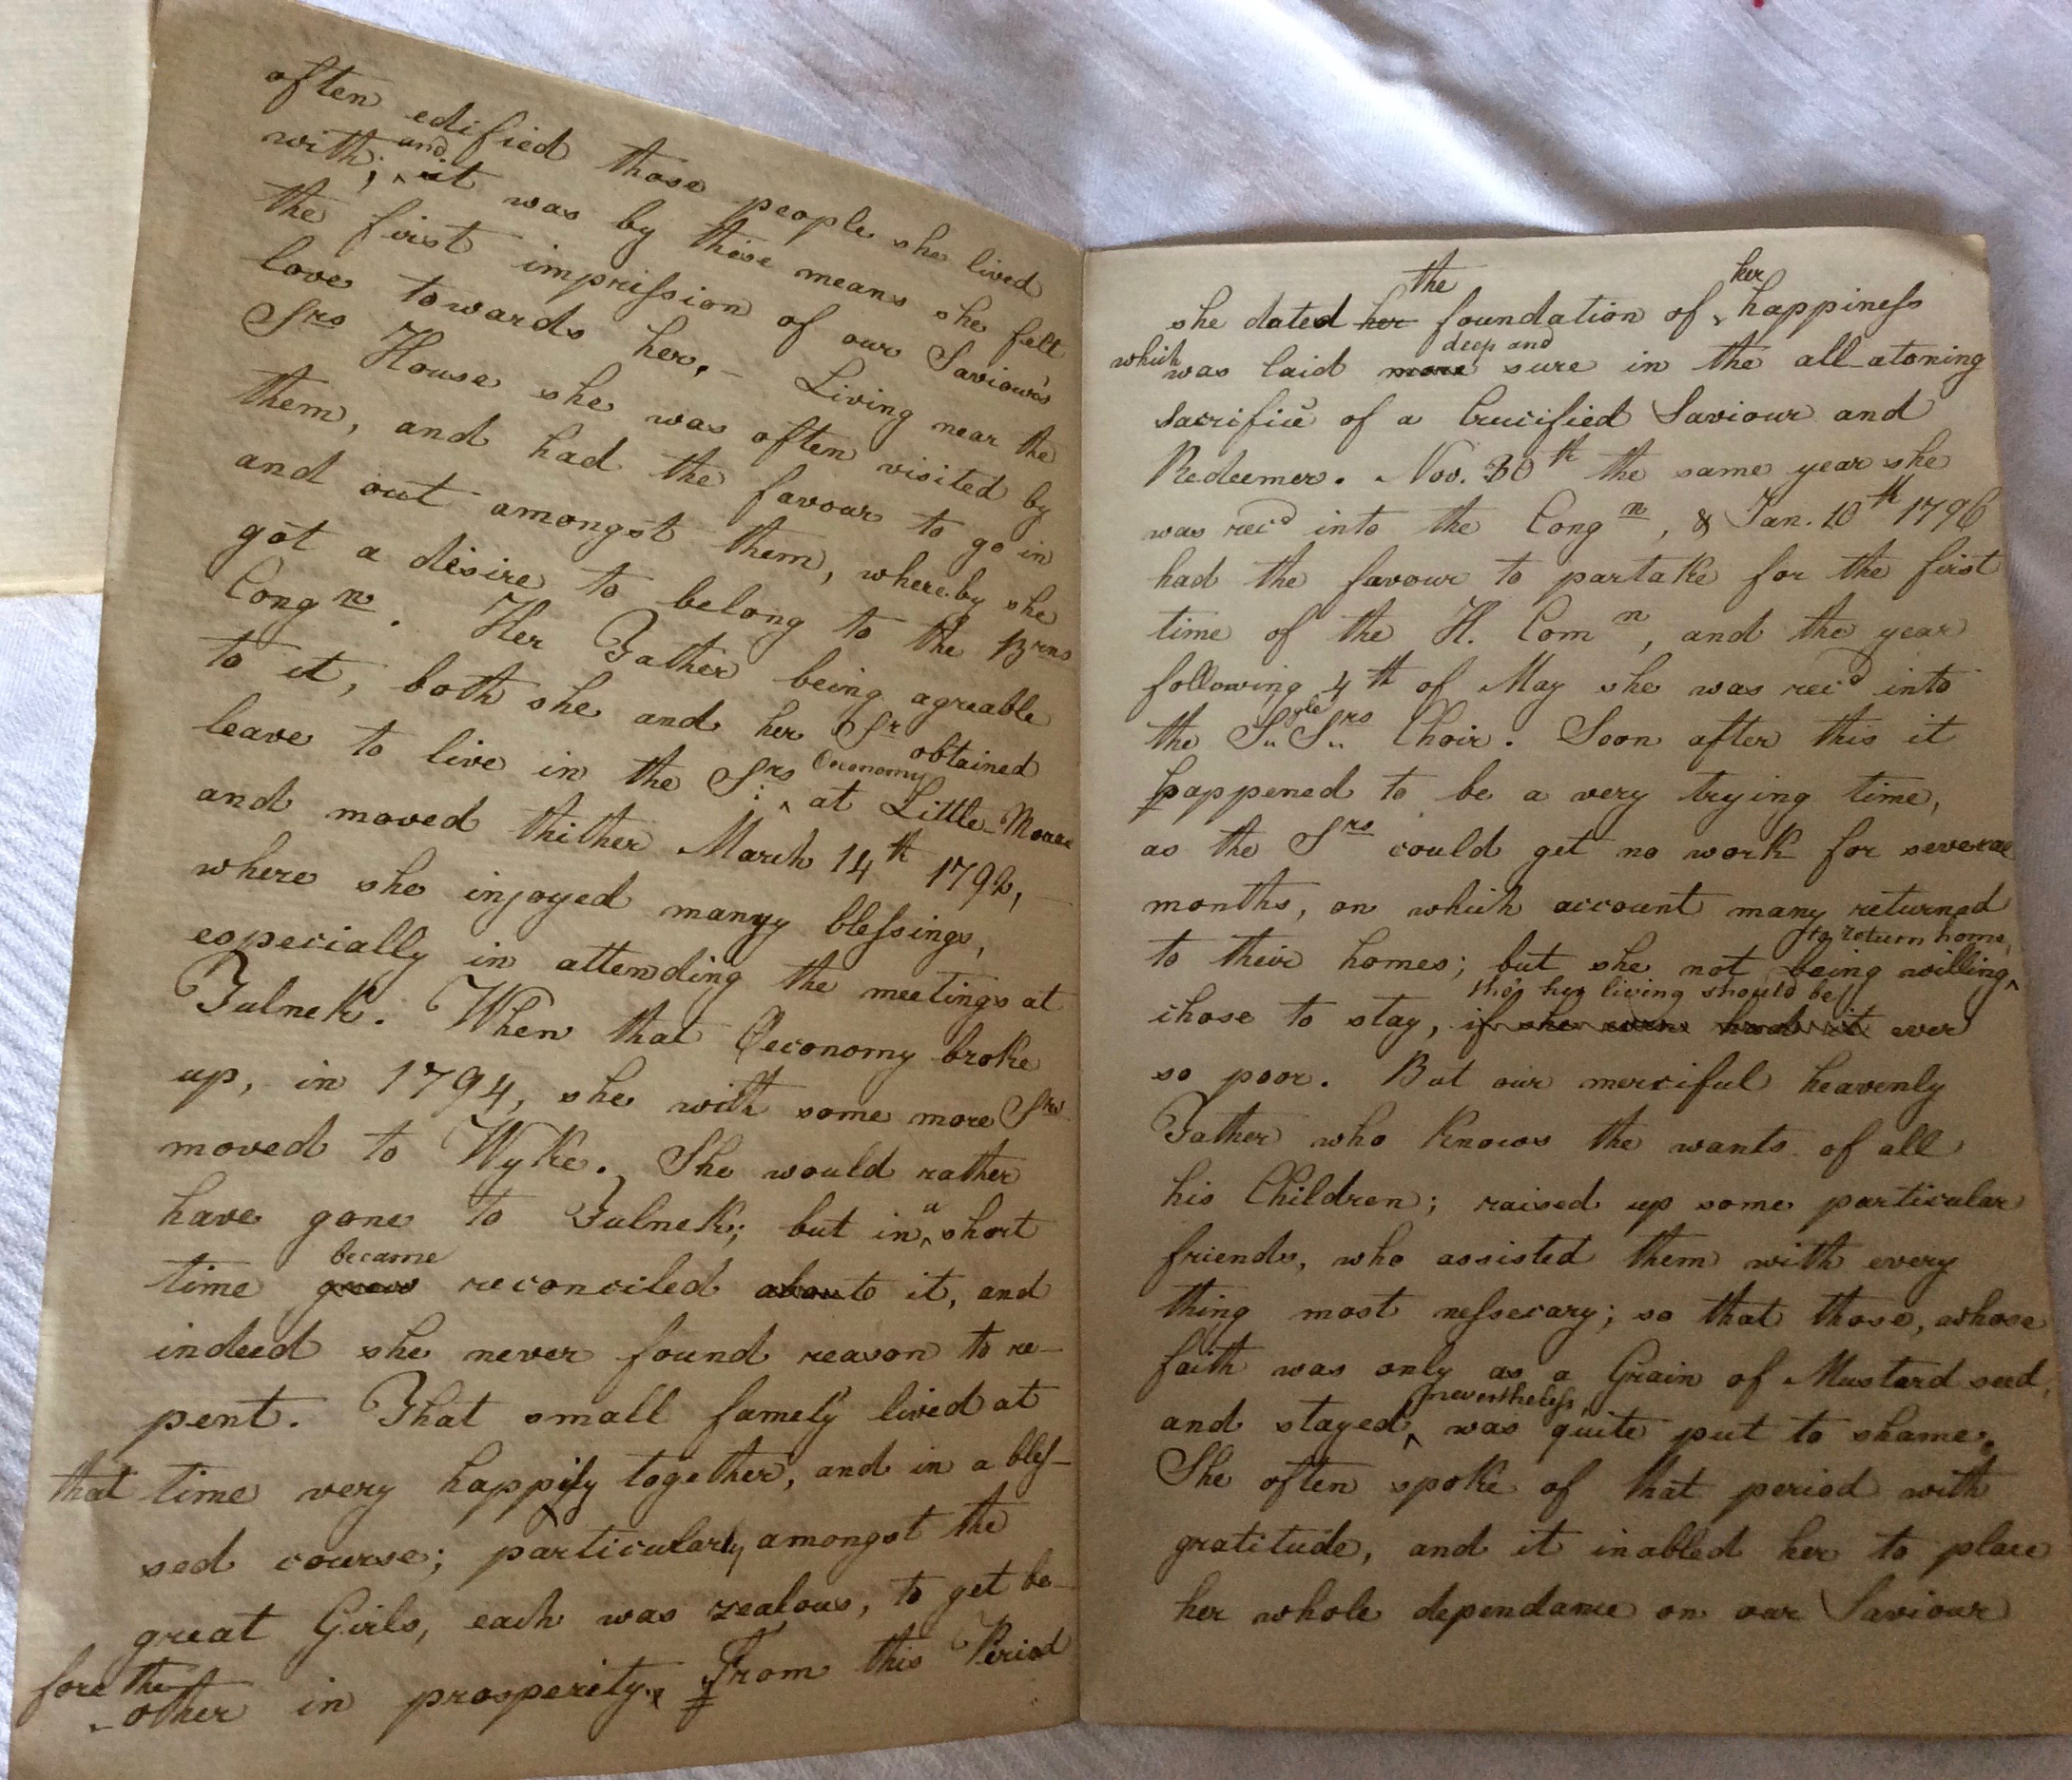 often edified those people she lived
with; and it was by these means she felt
the first impression of our Saviour's
love towards her. – Living near the
Srs House she was often visited by
them, and had the favour to go in
and out amongst them, whereby she
got a desire to belong to the Brns
Congn. Her Father being agreable
to it, both she and her Sr obtained
leave to live in the Srs Oeconomy at Little-Moore
and moved thither March 14th 1792,
where she injoyed many blessings,
especially in attending the meetings at
Fulnek. When that Oeconomy broke
up, in 1794, she with some more Srs
moved to Wyke. She would rather
have gone to Fulnek; but in a short
time grew became reconciled to it, and
indeed she never found reason to re-
pent. That small famely lived at
that time very happily together, and in a bles-
sed course; particularly amongst the
great Girls, each was zealous, to get be-
fore the other in prosperity. From this Period
she dated her the foundation of her happiness
which was laid more deep and sure in the all-atoning
sacrifice of a Crucified Saviour and
Redeemer. Nov. 30th the same year she
was recd into the Congn, & Jan. 10th 1796
had the favour to partake for the first
time of the H. Comn, and the year
following 4th of May she was recd into
the Sgle Srs Choir. Soon after this it
happened to be a very trying time,
as the Srs could get no work for several
months, on which account many returned
to their homes; but she not being willing to return home,
chose to stay, if she even had it tho' her living should be ever
so poor. But our merciful heavenly
Father who knows the wants of all
his Children; raised up some particular
friends, who assisted them with every
thing most nessecary; so that those, whose
faith was only as a Grain of Mustard seed,
and stayed nevertheless, was quite put to shame.
She often spoke of that period with
gratitude, and it inabled her to place
her whole dependance on our Saviour